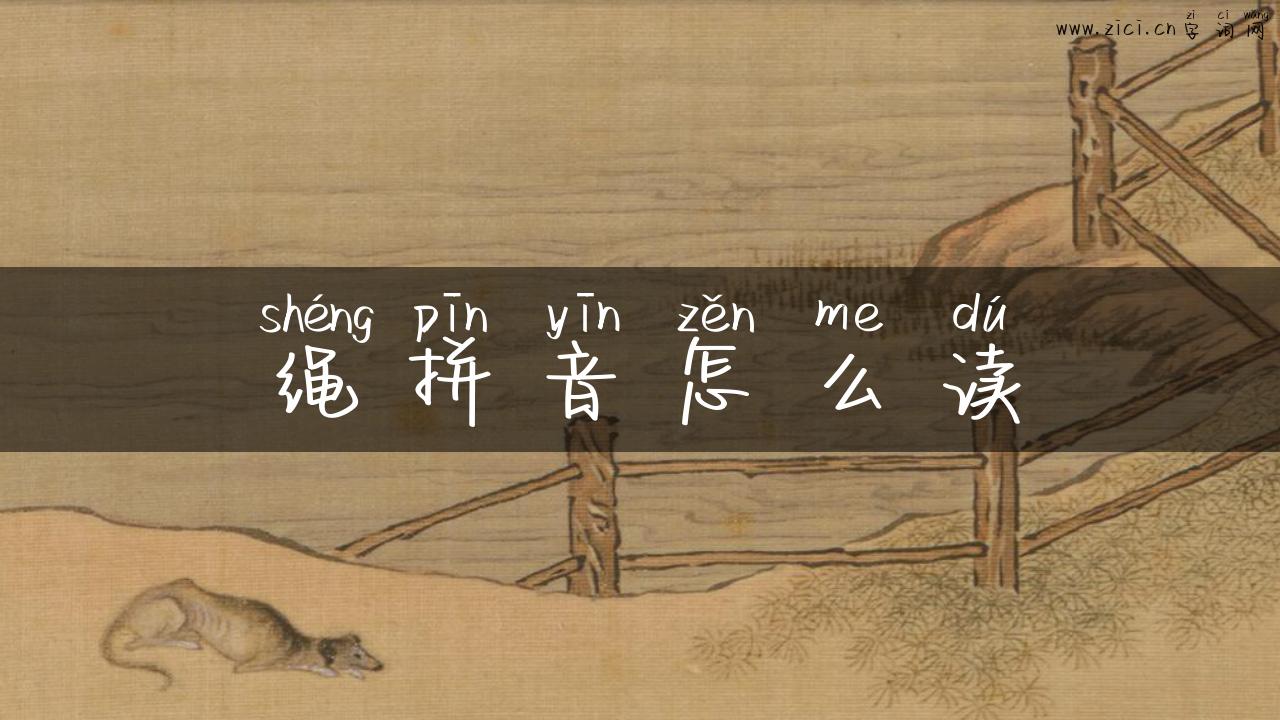 zi ci wang
www.zici.cn 字词网
shéng pīn yīn zěn me dú
绳拼音怎么读